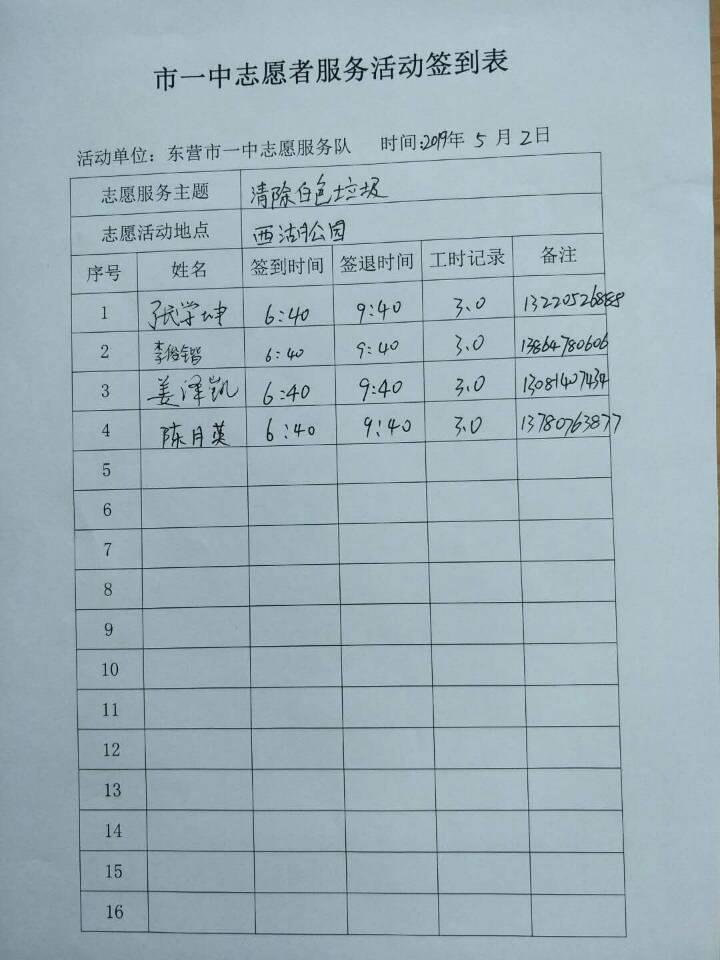 市一中志愿者服务活动签到表
活动单位：东营市一中志愿服务队 时间:2019年 5 月 2 日
志愿服务主题 清除白色垃圾
志愿活动地点 西湖公园
序号 姓名 签到时间 签退时间 工时记录 备注
1 张学坤 6:40 9:40 3.0 13220526888
2 李俊锴 6:40 9:40 3.0 13864780606
3 姜泽凯 6:40 9:40 3.0 13081407434
4 陈月英 6:40 9:40 3.0 13780763877
5
6
7
8
9
10
11
12
13
14
15
16